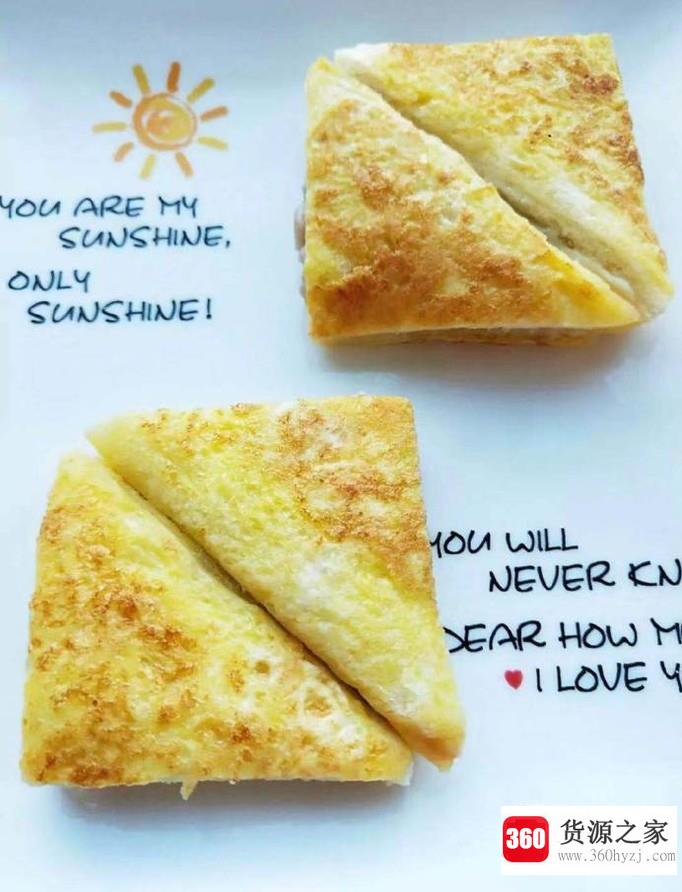 YOU ARE MY
SUNSHINE,
ONLY
SUNSHINE!
YOU WILL
NEVER KN
DEAR HOW M
I LOVE Y
360 货源之家
www.360hyzj.com